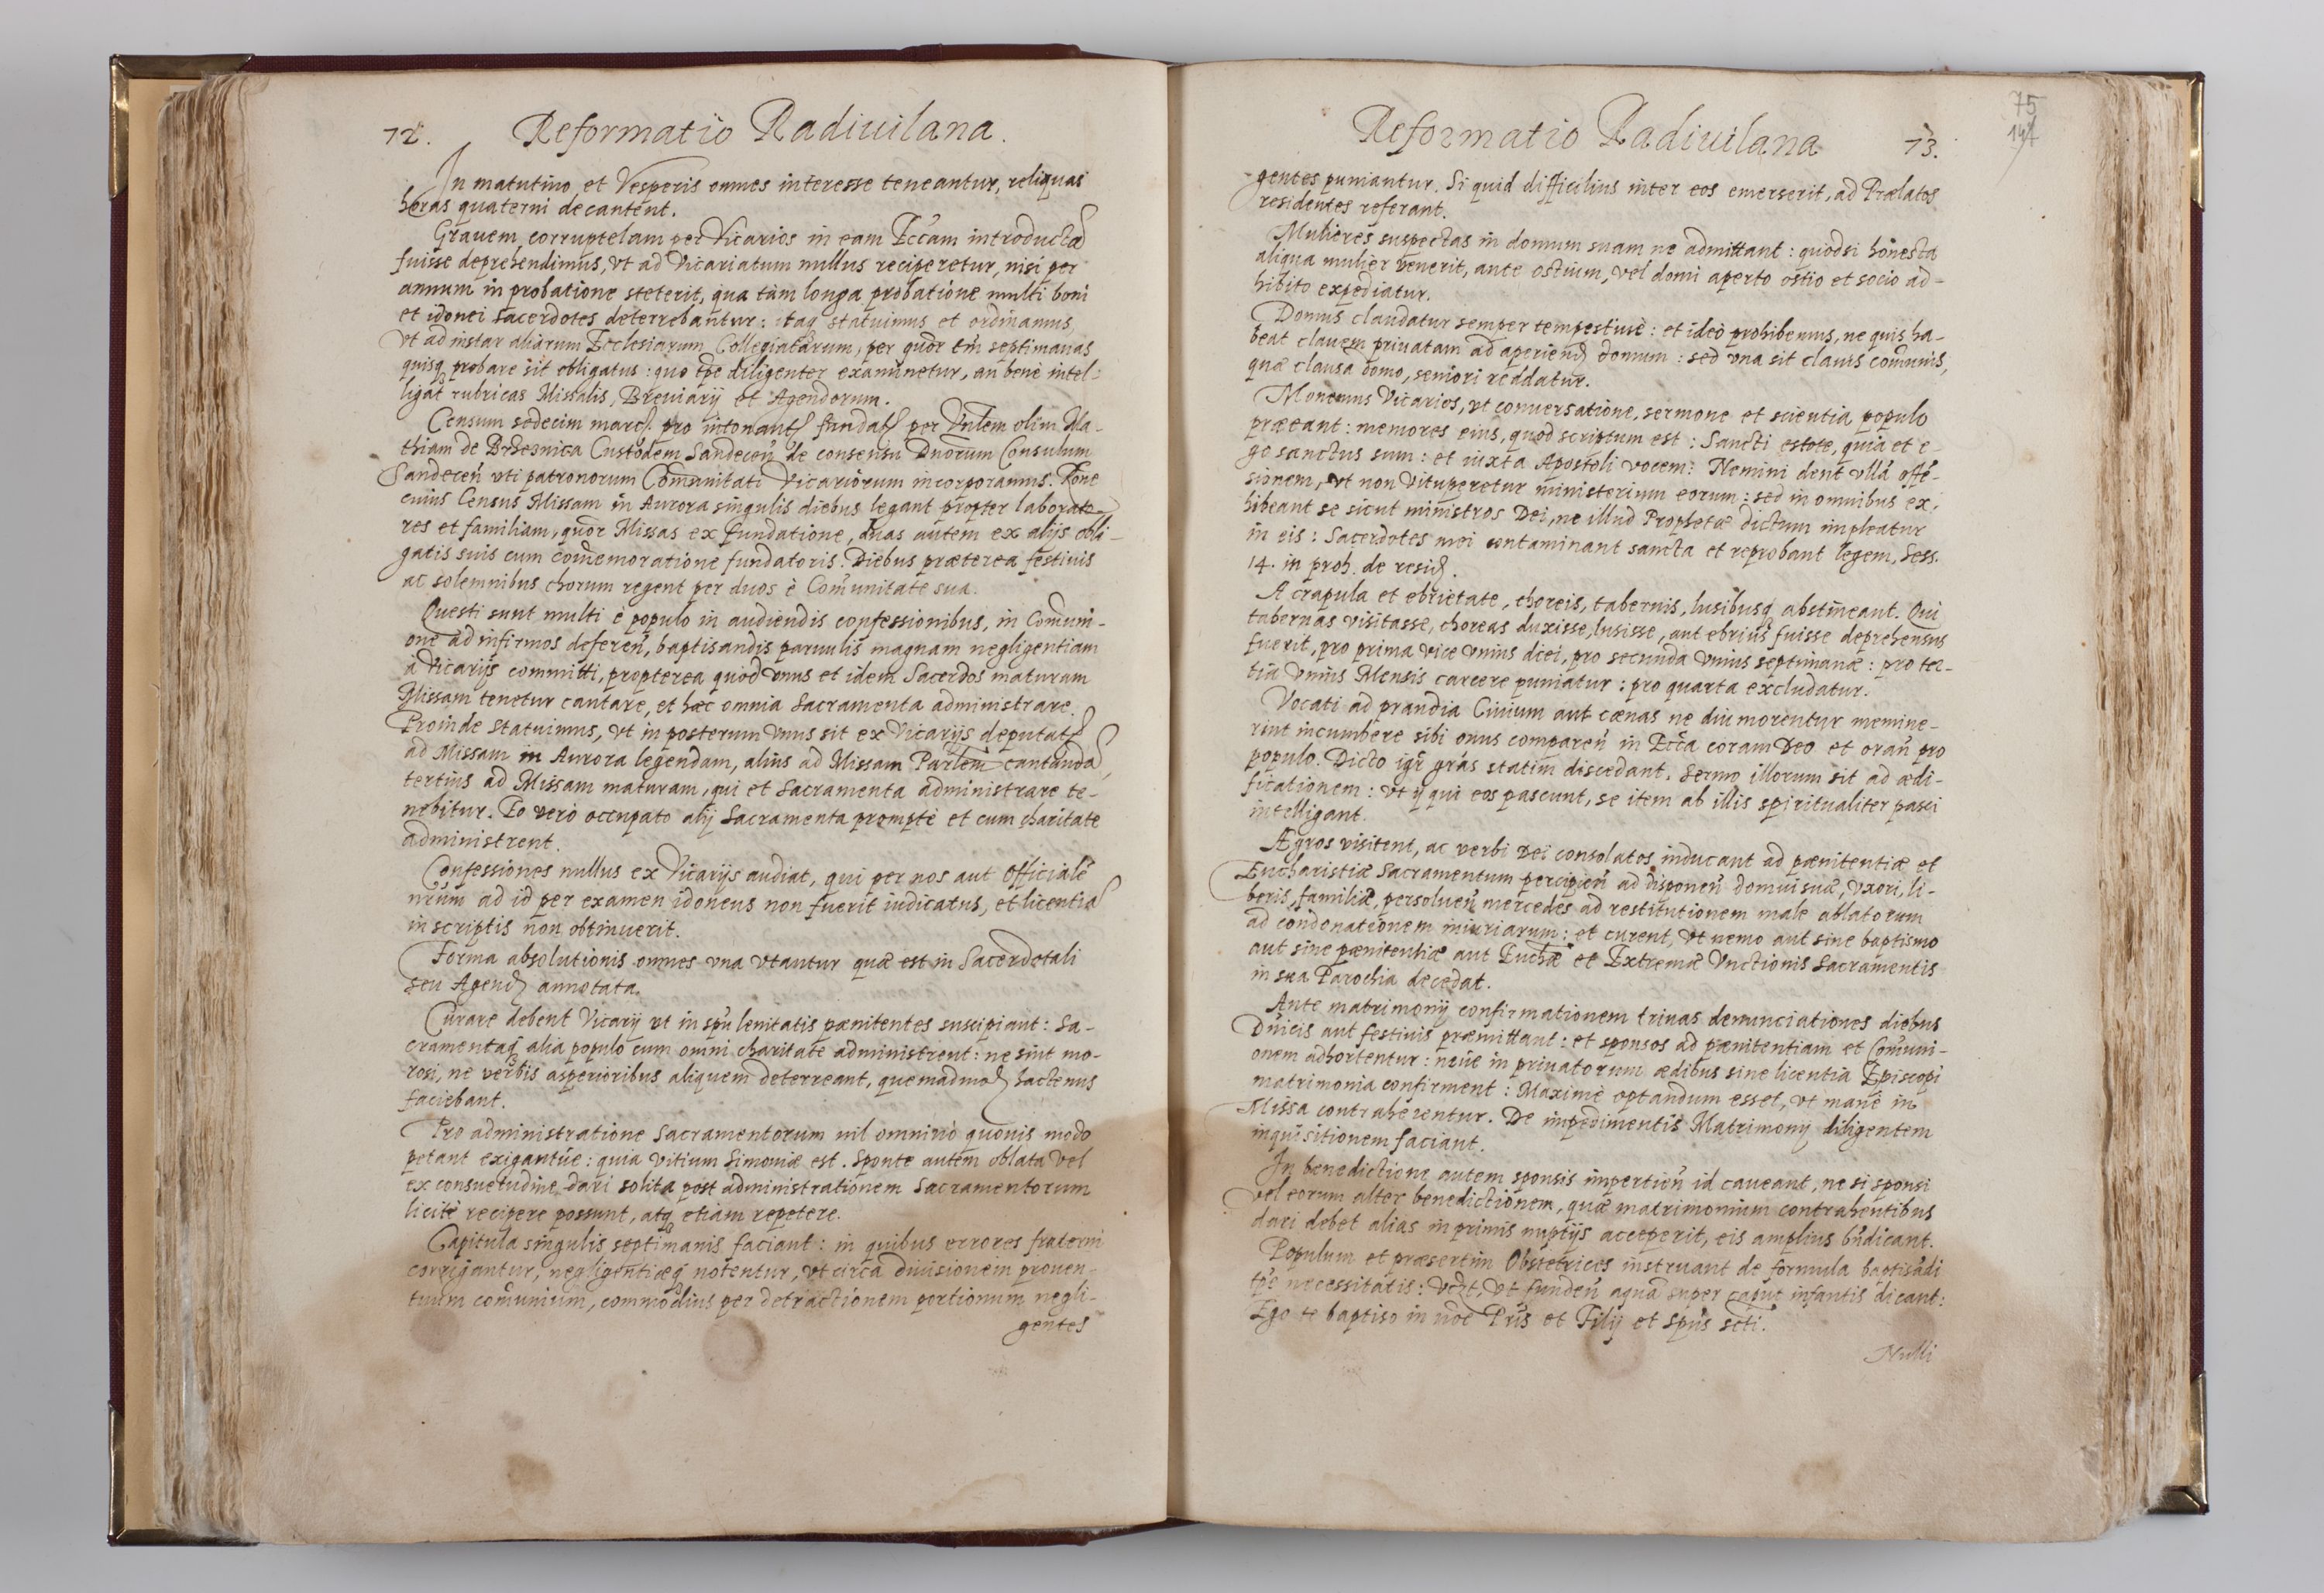 72. Reformatio Radiuilana.
In matutino et Vesperis omnes interesse teneantur, reliquas
horas quaterni decantent.
Grauem corruptelam per Vicarios in eam Eccam introductã
fuisse deprehendimus, vt ad Vicariatum nullus reciperetur, nisi per
annum in probatione steterit, qua tàm longa probatione multi boni
et idonei sacerdotes deterrebantur: itaq statuimus et ordinamus,
vt ad instar aliarum Ecclesiarum Collegiatarum, per quor tm septimanas
quisq probare sit obligatus: quo tpe diligenter examinetur, an bene intel-
ligat rubricas Missalis, Breuiarij et Agendorum.
Censum sedecim marc. pro intonant fundat per Vnlem olim Ma-
thiam de Brzesnica Custodem Sandecen de consensu Dnorum Consulum
Sandecen vti patronorum Comunitati Vicariorum incorporamus. Rone
cuius Census Missam in Aurora singulis diebus legant propter laborato-
res et familiam, quor Missas ex fundatione, duas autem ex alijs obli-
gatis suis cum comemoratione fundatoris. Diebus præterea festiuis
ac solemnibus chorum regent per duos è Comunitate sua.
Questi sunt multi è populo in audiendis confessionibus, in Comuni-
one ad infirmos deferen, baptisandis paruulis magnam negligentiam
à Vicarijs committi, propterea quod vnus et idem Sacerdos maturam
Missam tenetur cantare, et hæc omnia Sacramenta administrare.
Proinde statuimus, vt in posterum vnus sit ex Vicarijs deputat
ad Missam in Aurora legendam, alius ad Missam Parlem cantandã,
tertius ad Missam maturam, qui et Sacramenta administrare te-
nebitur. Eo verò occupato alij Sacramenta promptè et cum charitate
administrent.
Confessiones nullus ex Vicarijs audiat, qui per nos aut Officialẽ
nrum ad id per examen idoneus non fuerit iudicatus, et licentiã
in scriptis non obtinuerit.
Forma absolutionis omnes vna vtantur quæ est in Sacerdotali
seu Agend annotata.
Curare debent Vicarij vt in spu lenitatis pænitentes suscipiant: Sa-
cramentaq alia populo cum omni charitate administrent: ne sint mo-
rosi, ne verbis asperioribus aliquem deterreant, quemadmod hactenus
faciebant.
Pro administratione Sacramentorum nil omnino quouis modo
petant exigantue: quia vitium Simoniæ est. Sponte autem oblata vel
ex consuetudine dari solita post administrationem Sacramentorum
licite recipere possunt, atq etiam repetere.
Capitula singulis septimanis faciant: in quibus errores fraterni
corrigantur, negligentiæq notentur, vt circa diuisionem prouen-
tuum comunium, commodius per detractionem portionum negli-
gentes
Reformatio Radiuilana 73.
75
147
gentes puniantur. Si quid difficilius inter eos emerserit, ad Prælatos
residentes referant.
Mulieres suspectas in domum suam ne admittant: quodsi honesta
aliqua mulier venerit, ante ostium, vel domi aperto ostio et socio ad-
hibito expediatur.
Domus claudatur semper tempestiuè: et ideò prohibemus, ne quis ha-
beat clauem priuatam ad aperiend domum: sed vna sit clauis comunis,
quæ clausa domo, seniori reddatur.
Monemus Vicarios, vt conuersatione, sermone et scientia populo
præeant: memores eius, quod scriptum est: Sancti estote, quia et e-
go sanctus sum: et iuxta Apostoli vocem: Nemini dent vllã offẽ-
sionem, vt non vituperetur ministerium eorum: sed in omnibus ex-
hibeant se sicut ministros Dei, ne illud Prophetæ dictum impleatur
in eis: Sacerdotes mei contaminant sancta et reprobant legem, Sess.
14. in proh. de resid.
A crapula et ebrietate, choreis, tabernis, lusibusq abstineant. Qui
tabernas visitasse, choreas duxisse, lusisse, aut ebrius fuisse deprehensus
fuerit, pro prima vice vnius diei, pro secunda vnius septimanæ: pro ter-
tia vnius Mensis carcere puniatur: pro quarta excludatur.
Vocati ad prandia Ciuium aut cænas ne diu morentur memine-
rint incumbere sibi onus comparen in Ecca coram Deo et oran pro
populo. Dicto igr gras statim discedant. Sermo illorum sit ad ædi-
ficationem: vt ij qui eos pascunt, se item ab illis spiritualiter pasci
intelligant.
Ægros visitent, ac verbi Dei consolatos inducant ad pænitentiæ et
Eucharistiæ Sacramentum percipien ad disponen domui suæ, vxori, li-
beris, familiæ, persoluen mercedes ad restitutionem male ablatorum
ad condonationem iniuriarum: et curent, vt nemo aut sine baptismo
aut sine pænitentiæ aut Euchæ et Extremæ Vnctionis Sacramentis
in sua Parochia decedat.
Ante matrimonij confirmationem trinas denunciationes diebus
Dnicis aut festiuis præmittant: et sponsos ad pænitentiam et Comuni-
onem adhortentur: neue in priuatorum ædibus sine licentia Episcopi
matrimonia confirment: Maximè optandum esset, vt manè in
Missa contraherentur. De impedimentis Matrimonij diligentem
inquisitionem faciant.
In benedictione autem sponsis impertien id caueant, ne si sponsi
vel eorum alter benedictionem, quæ matrimonium contrahentibus
dari debet alias in primis nuptijs acceperit, eis amplius bndicant.
Populum et præsertim Obstetrices instruant de formula baptisãdi
tpe necessitatis: vdzt, vt funden aquã super caput infantis dicant:
Ego te baptiso in noe Pris et Filij et Spus scti.
Nulli